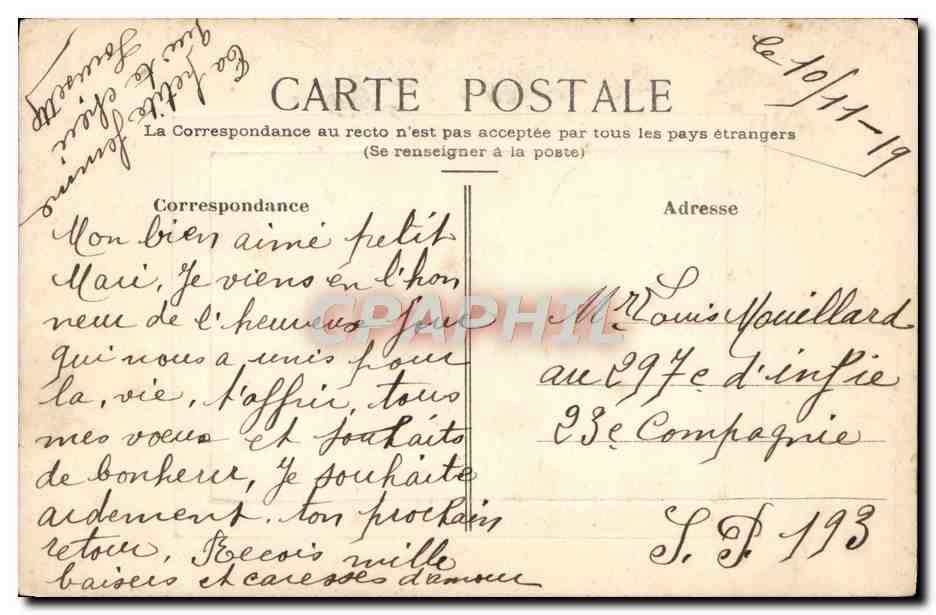 Le 10/11-19
CARTE POSTALE
La Correspondance au recto n'est pas acceptée par tous les pays étrangers
(Se renseigner à la poste)
Correspondance
Mon bien aimé petit
Mari, Je viens en l'hon
neur de l'heureux jour
qui nous a unis pour
la, vie, t'offrir, tous
mes voeux et souhaits
de bonheur, Je souhaite
ardement. ton prochain
retour, Recois mille
baisers et caresses d'amour
Ta petite femme
qui te chéri
Adresse
Mr Louis Mouillard
au 297e d'infie
23e Compagnie
S. P. 193
CPAPHIL